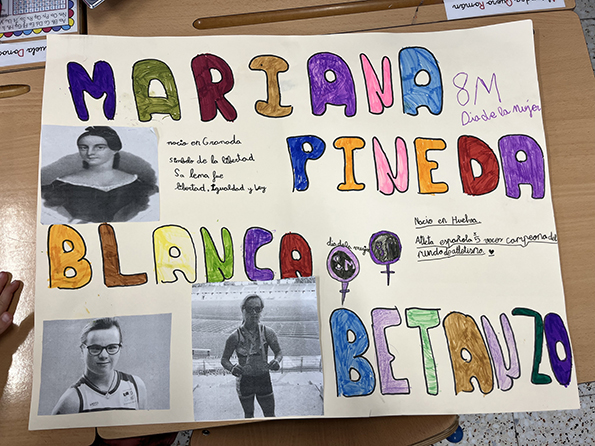 MARIANA
PINEDA
8M
Dia de la Mujer
nacio en Granada
Simbolo de la libertad
Su lema fue
libertad, Igualdad y Ley
BLANCA
BETANZO
dia de la mujer
8M
Nacio en Huelva.
Atleta española 5 veces campeona del
mundo de atletismo.